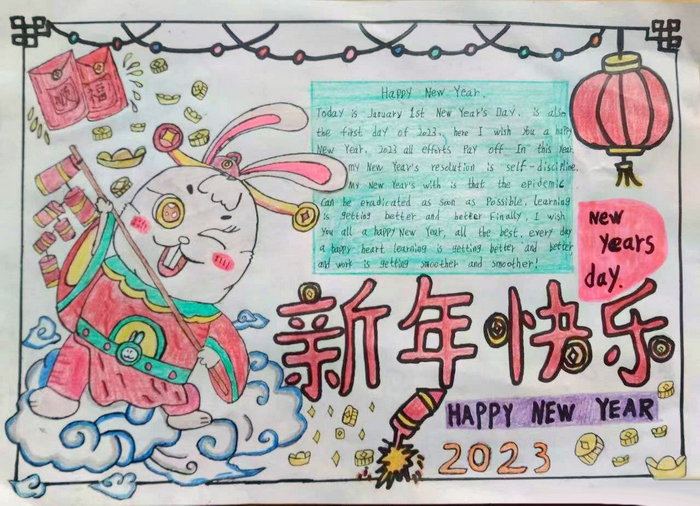 顺
福
Happy New Year.
Today is January 1st New Year's Day, is also
the first day of 2023, here I wish you a happy
New Year, 2023 all efforts Pay off In this Year
my New Year's resolution is self-discipline.
My New Year's with is that the epidemic
Can be eradicated as soon as Possible, Learning
is getting better and better Finally, I wish
You all a happy New Year, all the best, every day
a happy heart learning is getting better and better
and work is getting smoother and smoother!
New
Years
day.
新年快乐
HAPPY NEW YEAR
2023